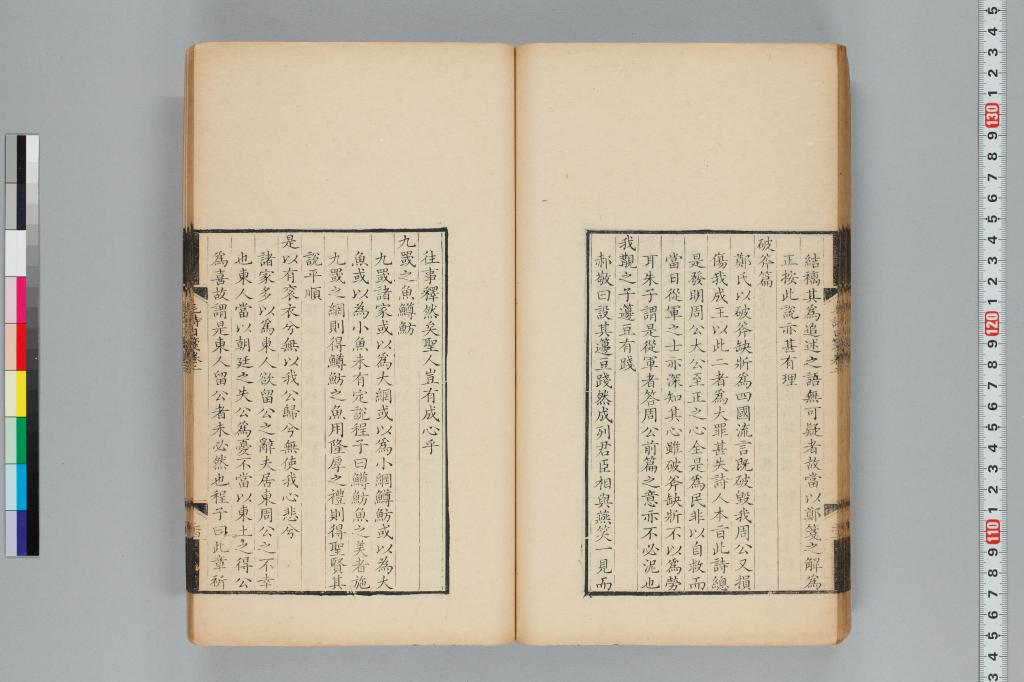 結褵其為追述之語無可疑者故當以鄭箋之解為
正按此說亦甚有理
破斧篇
鄭氏以破斧缺斨為四國流言既破毀我周公又損
傷我成王以此二者為大罪甚失詩人本旨此詩總
是發明周公大公至正之心全是為民非以自救而
當日從軍之士亦深知其心雖破斧缺斨不以為勞
耳朱子謂是從軍者答周公前篇之意亦不必泥也
我覯之子籩豆有踐
郝敬曰設其籩豆踐然成列君臣相與燕笑一見而
往事釋然矣聖人豈有成心乎
九罭之魚鱒魴
九罭諸家或以為大網或以為小網鱒魴或以為大
魚或以為小魚未有定說程子曰鱒魴魚之美者施
九罭之網則得鱒魴之魚用隆厚之禮則得聖賢其
說平順
是以有袞衣兮無以我公歸兮無使我心悲兮
諸家多以為東人欲留公之辭夫居東周公之不幸
也東人當以朝廷之失公為憂不當以東土之得公
為喜故謂是東人留公者未必然也程子曰此章祈